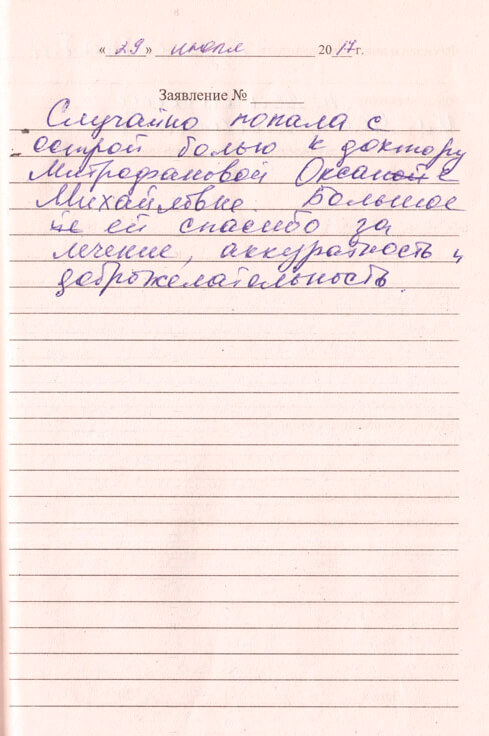 « 29 » июля 2017 г.
Заявление №
Случайно попала с
острой болью к доктору
Митрофановой Оксане
Михайловне. Большое
ей спасибо за
лечение, аккуратность и
доброжелательность.